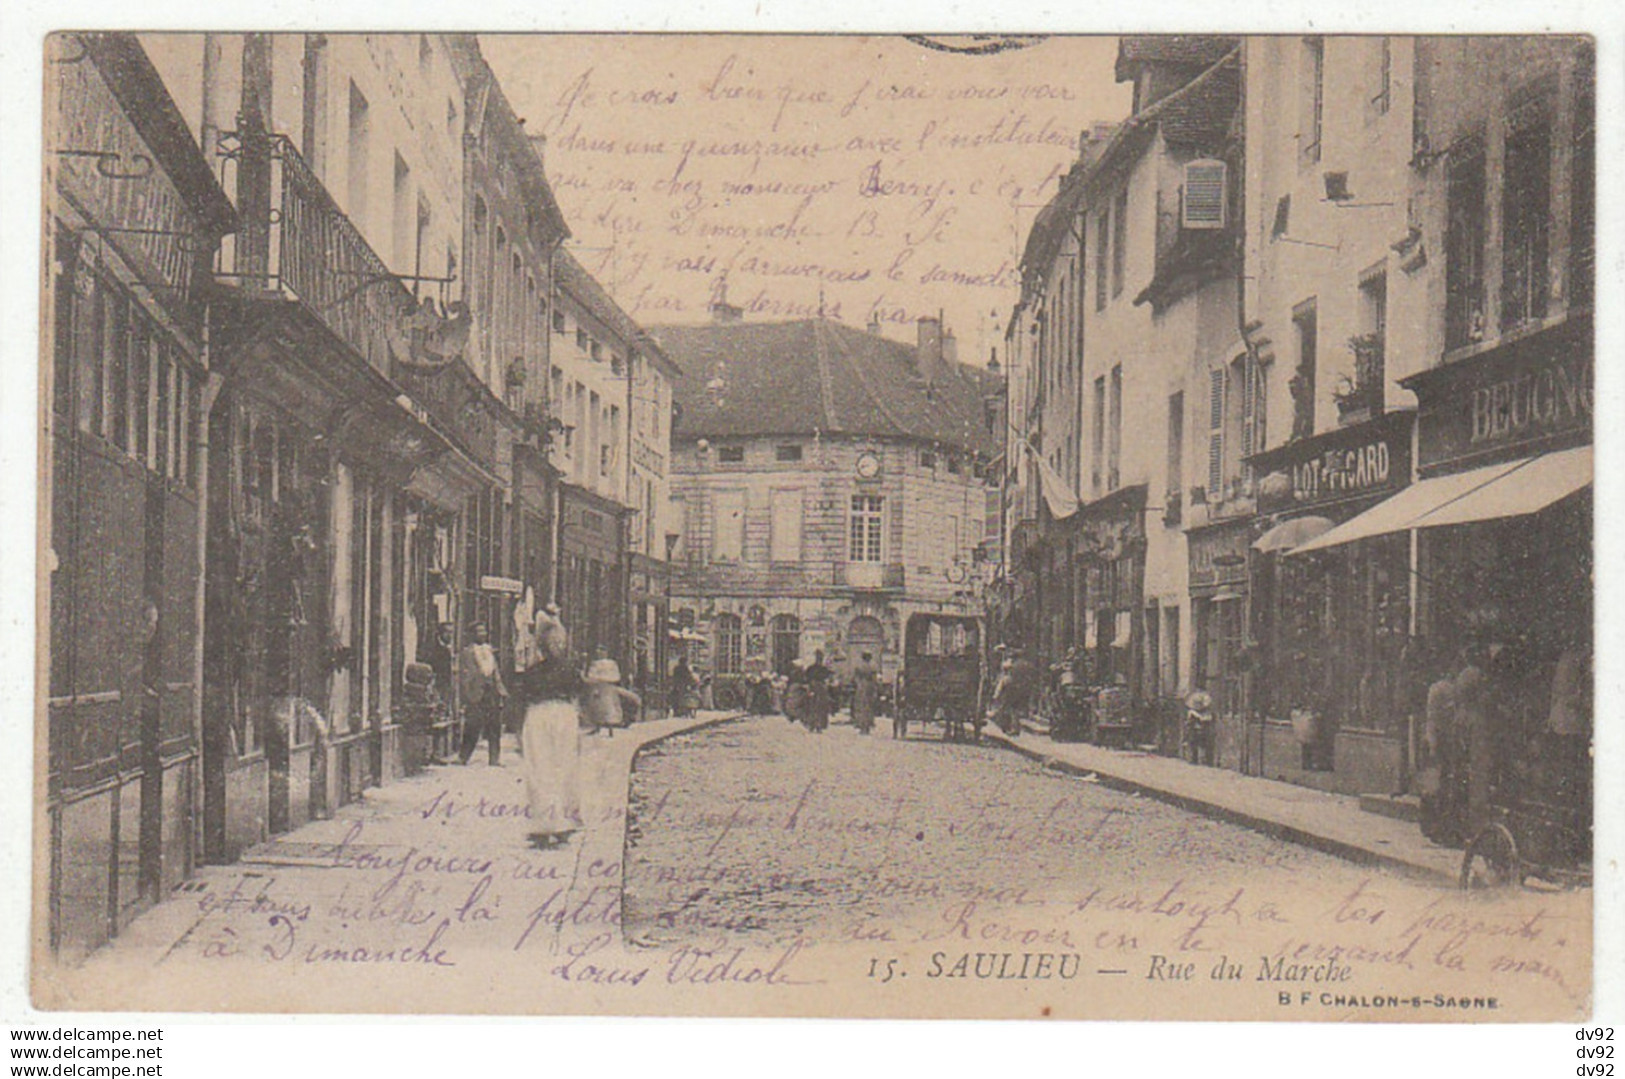 Je crois bien que j'irai vous voir
dans une quinzaine avec l'instituteur
qui va chez monsieur Berry. c'est
à dire Dimanche 13. Si
j'y vais j'arriverais le samedi
par le dernier train
LOT-PICARD
BEUGNO
si rien ne m'empechement.
Toujours au
pour moi surtout a tes parents.
et sans oublié la petite
au Revoir en te serrant la main
à Dimanche
Louis
15. SAULIEU — Rue du Marche
B F CHALON-S-SAONE
www.delcampe.net
www.delcampe.net
www.delcampe.net
dv92
dv92
dv92